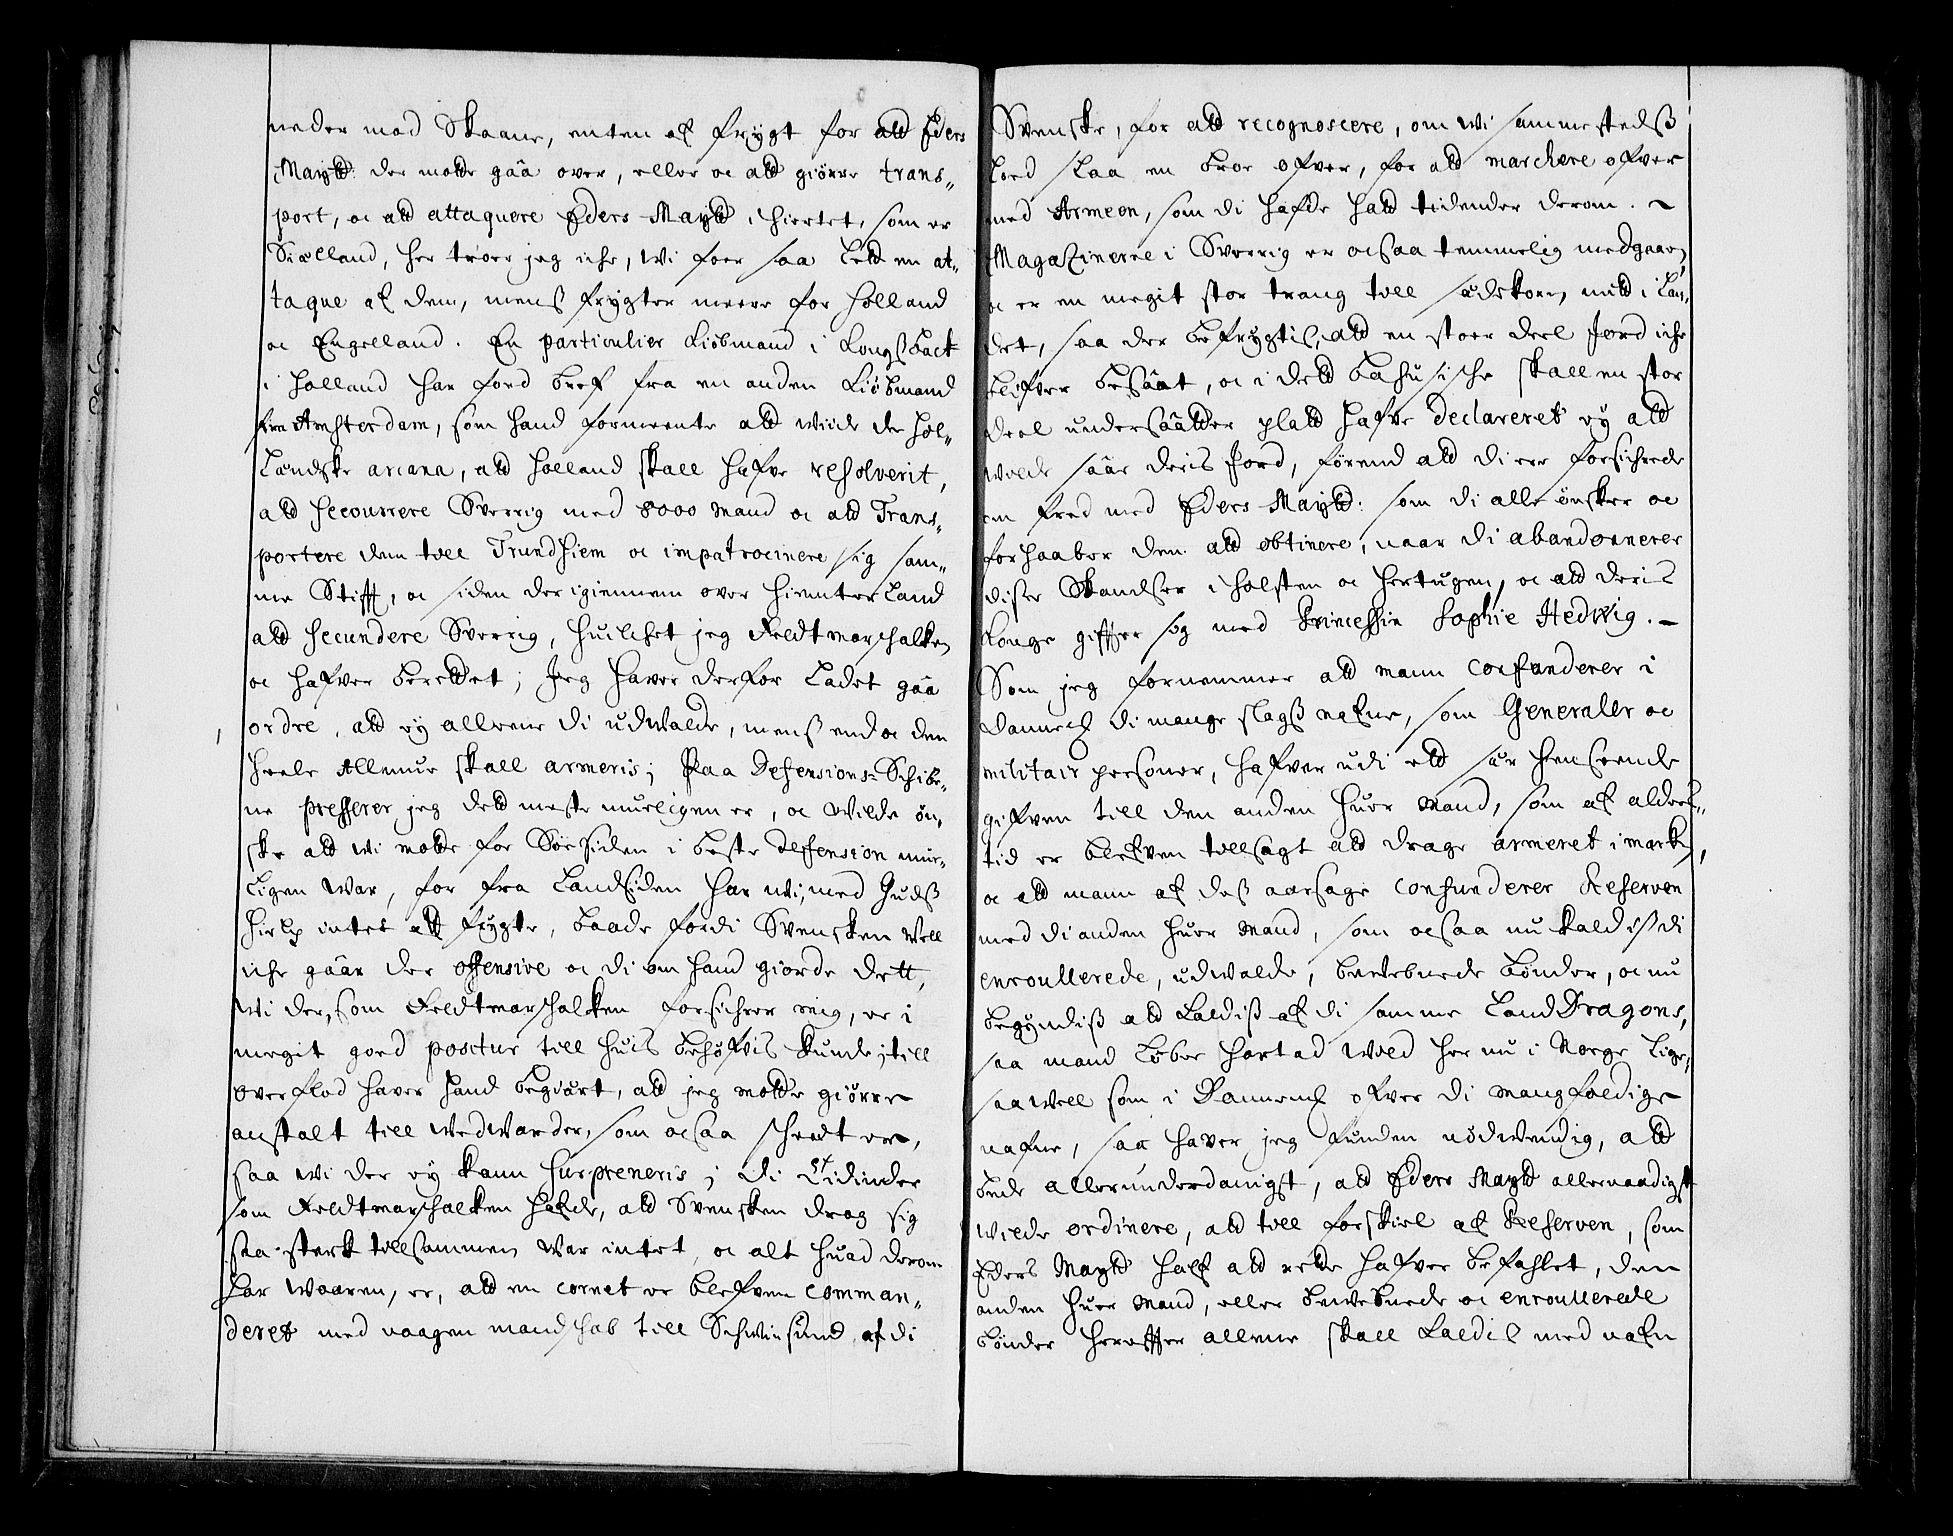 neder mod Skaane, enten af frygt for att Eders
Maytt: der motte gaa over, eller oc att giørre trans-
port, oc att attaquere Eders Maytt i hiertet, som er
Siælland, her troer jeg iche, wi foer saa lett en at-
taque af dem, menß frygter meere for Holland
oc Engelland. En particulier Kiøbmand i Kongßback
i Halland har foed bref fra en anden Kiøbmand
fra Amsterdam, som hand formeente att wide de Hol-
landske arcana, att Holland skall hafve resolverit,
att secourrere Sverrig med 8000 Mand oc att Trans-
portere dem till Trundhiem oc impatrocinere sig sam-
me Stifft, oc siden der igiennem over Hiemterland
att secundere Sverrig, huilchet jeg Feldtmarschalken
oc hafver berettet; Jeg haver derfor ladet gaa
ordre, att ey alleene di udwalde, menß end oc den
heele Allmue skall armeris; Paa Defensions-Schibe-
ne presserer jeg dett meste mueligen er, oc wilde øn-
ske att wi motte for Søesiden i beste deffension mue-
ligen war, for fra Landsiden har wi, med Gudß
hielp intet att frygte, baade fordi Svensken well
iche gaar der offensive oc di om hand giorde dett,
wi der, som Feldtmarschalcken forsichrer mig, er i
megit goed positur till huis behøfvis kunde; till
overflod haver hand begiært, att jeg motte giørre
anstalt till Wedwarder, som ocsaa scheedt er,
saa wi der ey kann surpreneris; di Tidinder
som Feldtmarschalcken hafde, att Svensken drog sig
saa sterk tillsammen war intet, oc alt huad derom
har waaren, er, att en cornet er blefven comman-
deret med naagen mandschab till Schwinsund af di
Svenske, for att recognoscere, om wi sammestedß
loed slaa en broe ofver, for att marchere ofver
med Armeen, som di hafde hatt tidender derom. -
Magazinerne i Sverrig er ocsaa temmelig medgaaen,
oc er en megit stor trang till sædekorn mitt i Lan-
det, saa der befrygtis, att en stoer deel Jord iche
blifver besaaet, oc i dett Bahusische skall en stor
deel undersaatter platt hafve declareret ey att
wilde saae deris Jord, førend att di er forsichrede
om fred med Eders Maytt: som di alle ønsker oc
forhaaber den att obtinere, naar di abandonnerer
disse Skandser i Holsten oc Hertugen, oc att deris
Konge giffter sig med Princessin Sophie Hedwig. -
Som jeg fornemmer att mann confunderer i
Danmarck di mange slagß nafne, som Generaler oc
militair personer, hafver udi ett sær henseende
gifven till den anden huer Mand, som af alders-
tid er blefven tillsagt att drage armeret i marken,
oc att mann af deß aarsage confunderer Reserven
med di anden huer Mand, som ocsaa nu kaldiß di
enroullerede, udwalde, bewebnede bønder, oc nu
begyndiß att kaldiß af di samme LandDragons,
saa mand løber hartad wild her nu i Norge lige-
saawell som i Danmarck ofver di mangfoldige
nafne, saa haver jeg funden nødwendig, att
bede allerunderdanigst, att Eders Maytt allernaadigst
wilde ordinere, att till forskiel af Reserven, som
Eders Maytt half att rette hafver befahlet, den
anden huer Mand, eller bewebnede oc enroullerede
bønder hereffter alleene skall kaldis med nafn